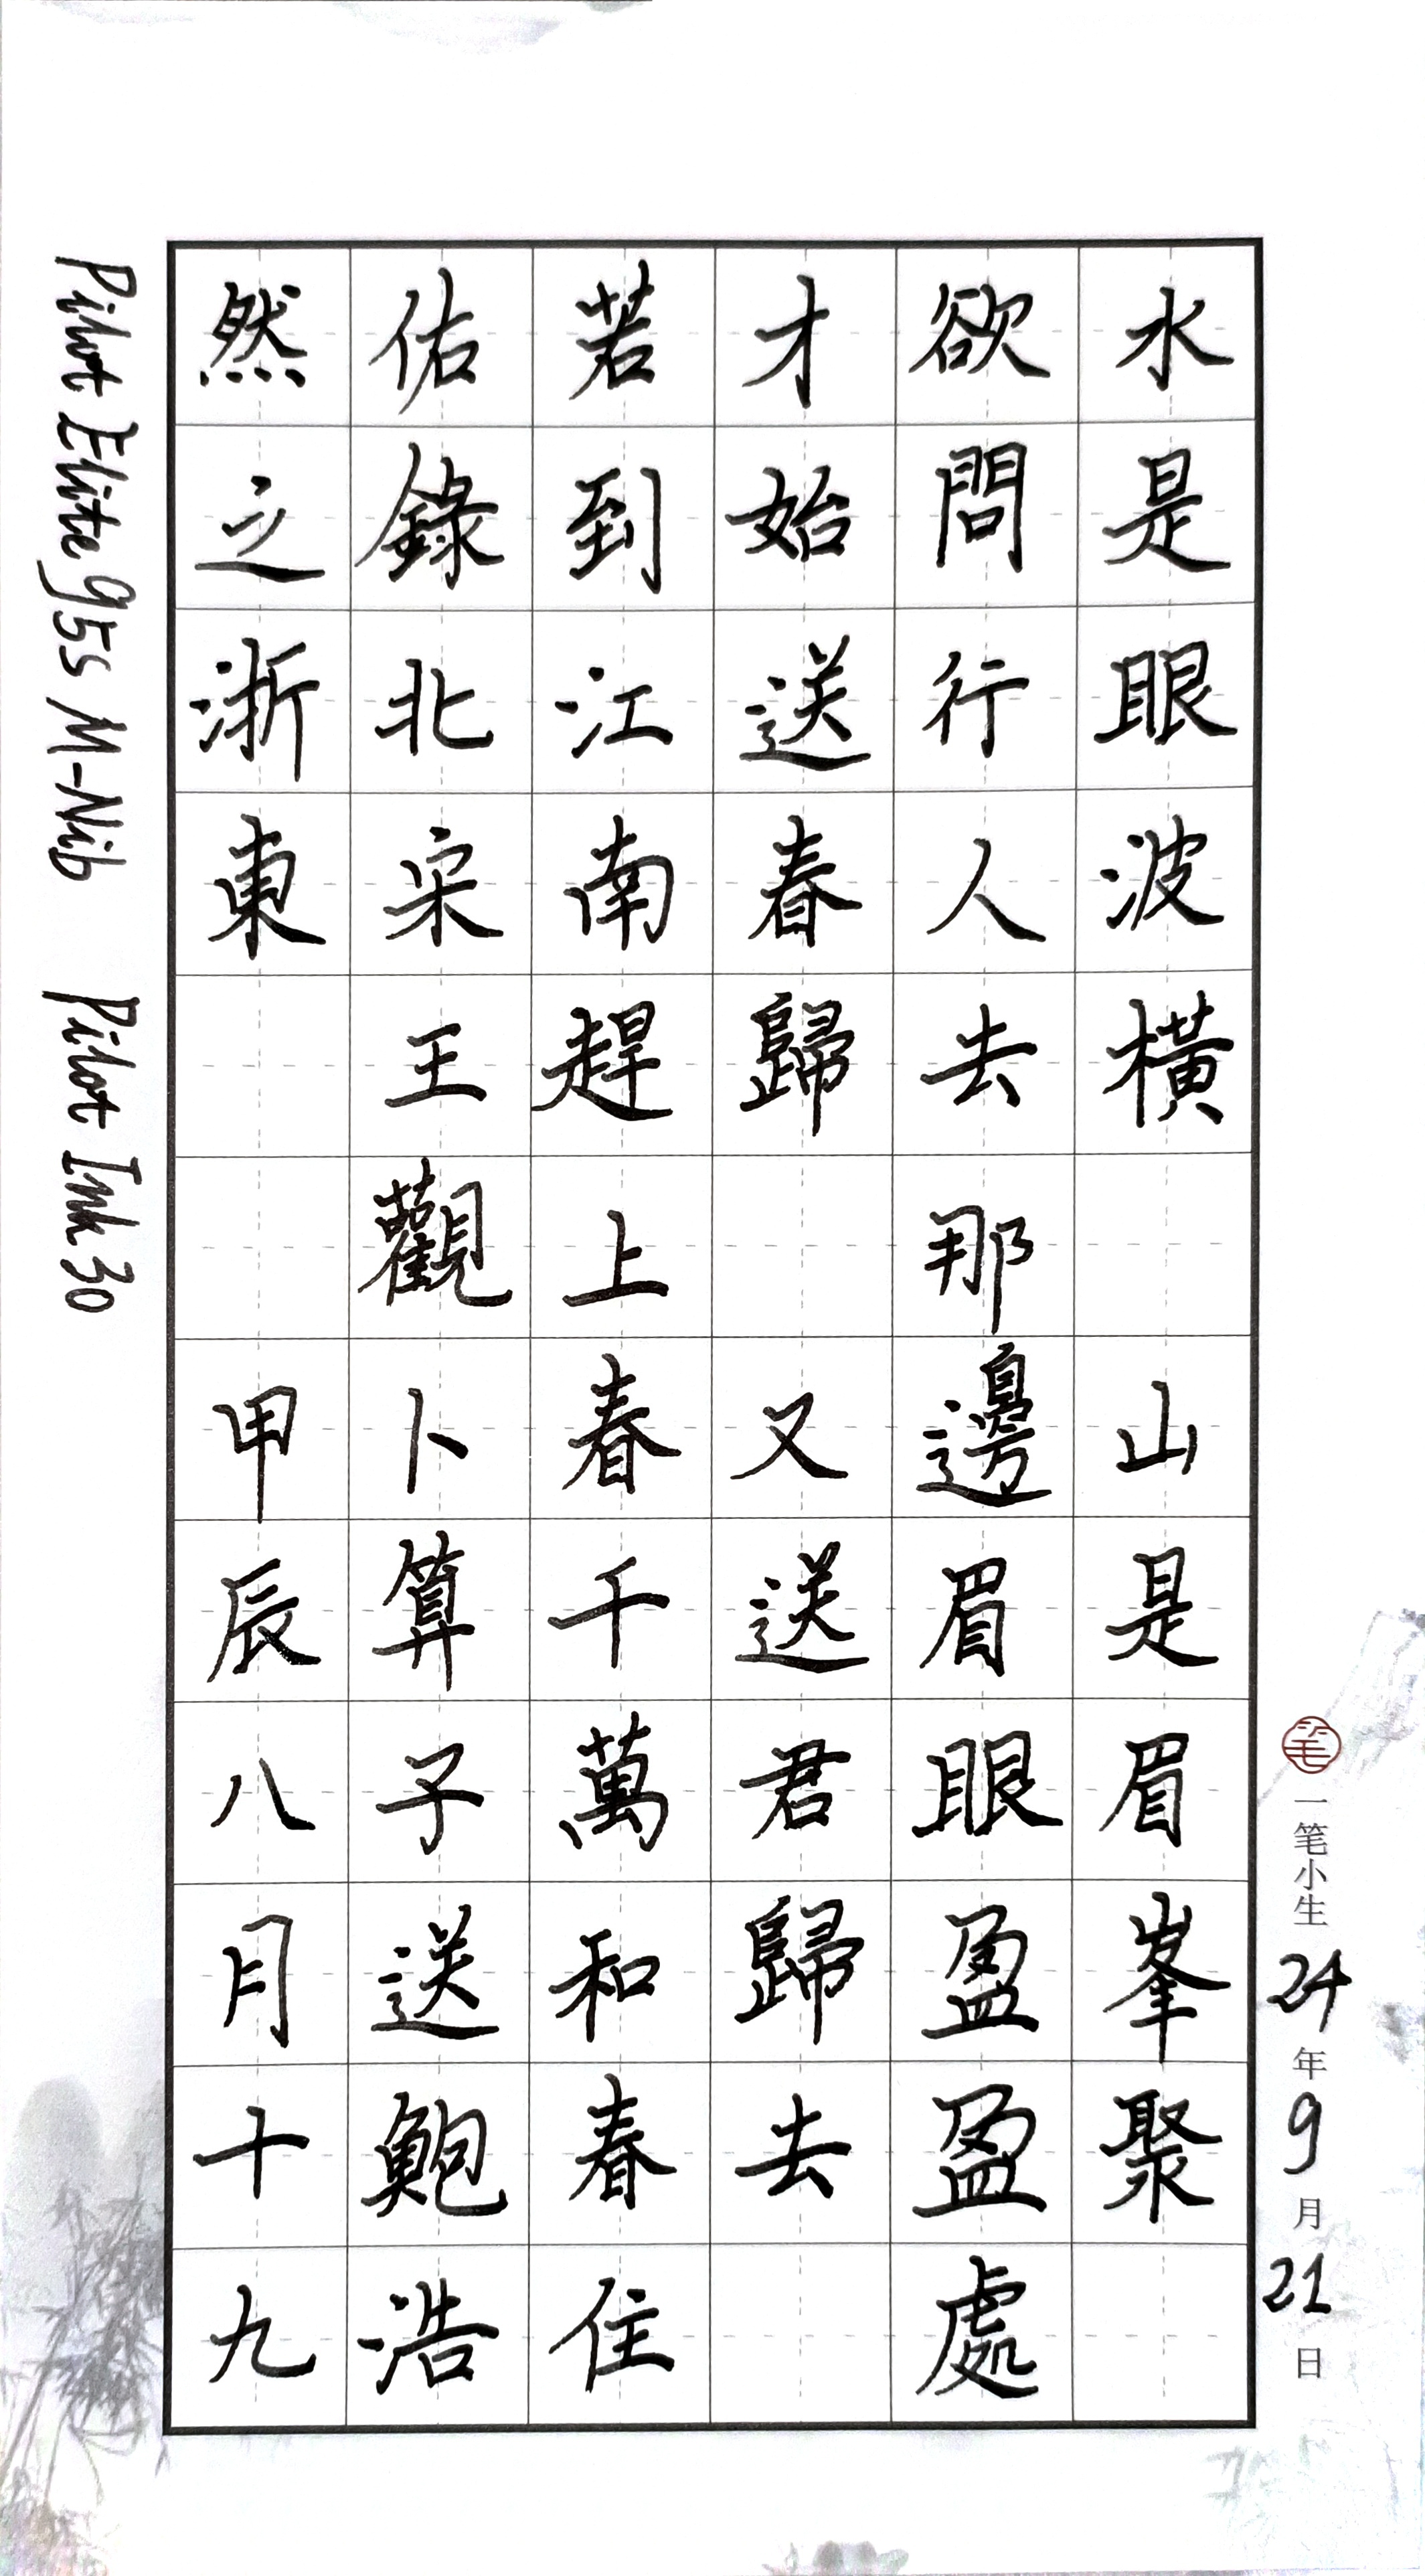 水是眼波橫 山是眉峯聚
欲問行人去那邊眉眼盈盈處
才始送春歸 又送君歸去
若到江南趕上春千萬和春住
佑錄北宋王觀卜算子送鮑浩
然之浙東 甲辰八月十九
Pilot Elite 95s M-Nib Pilot Ink 30
笔 一笔小生 24年9月21日